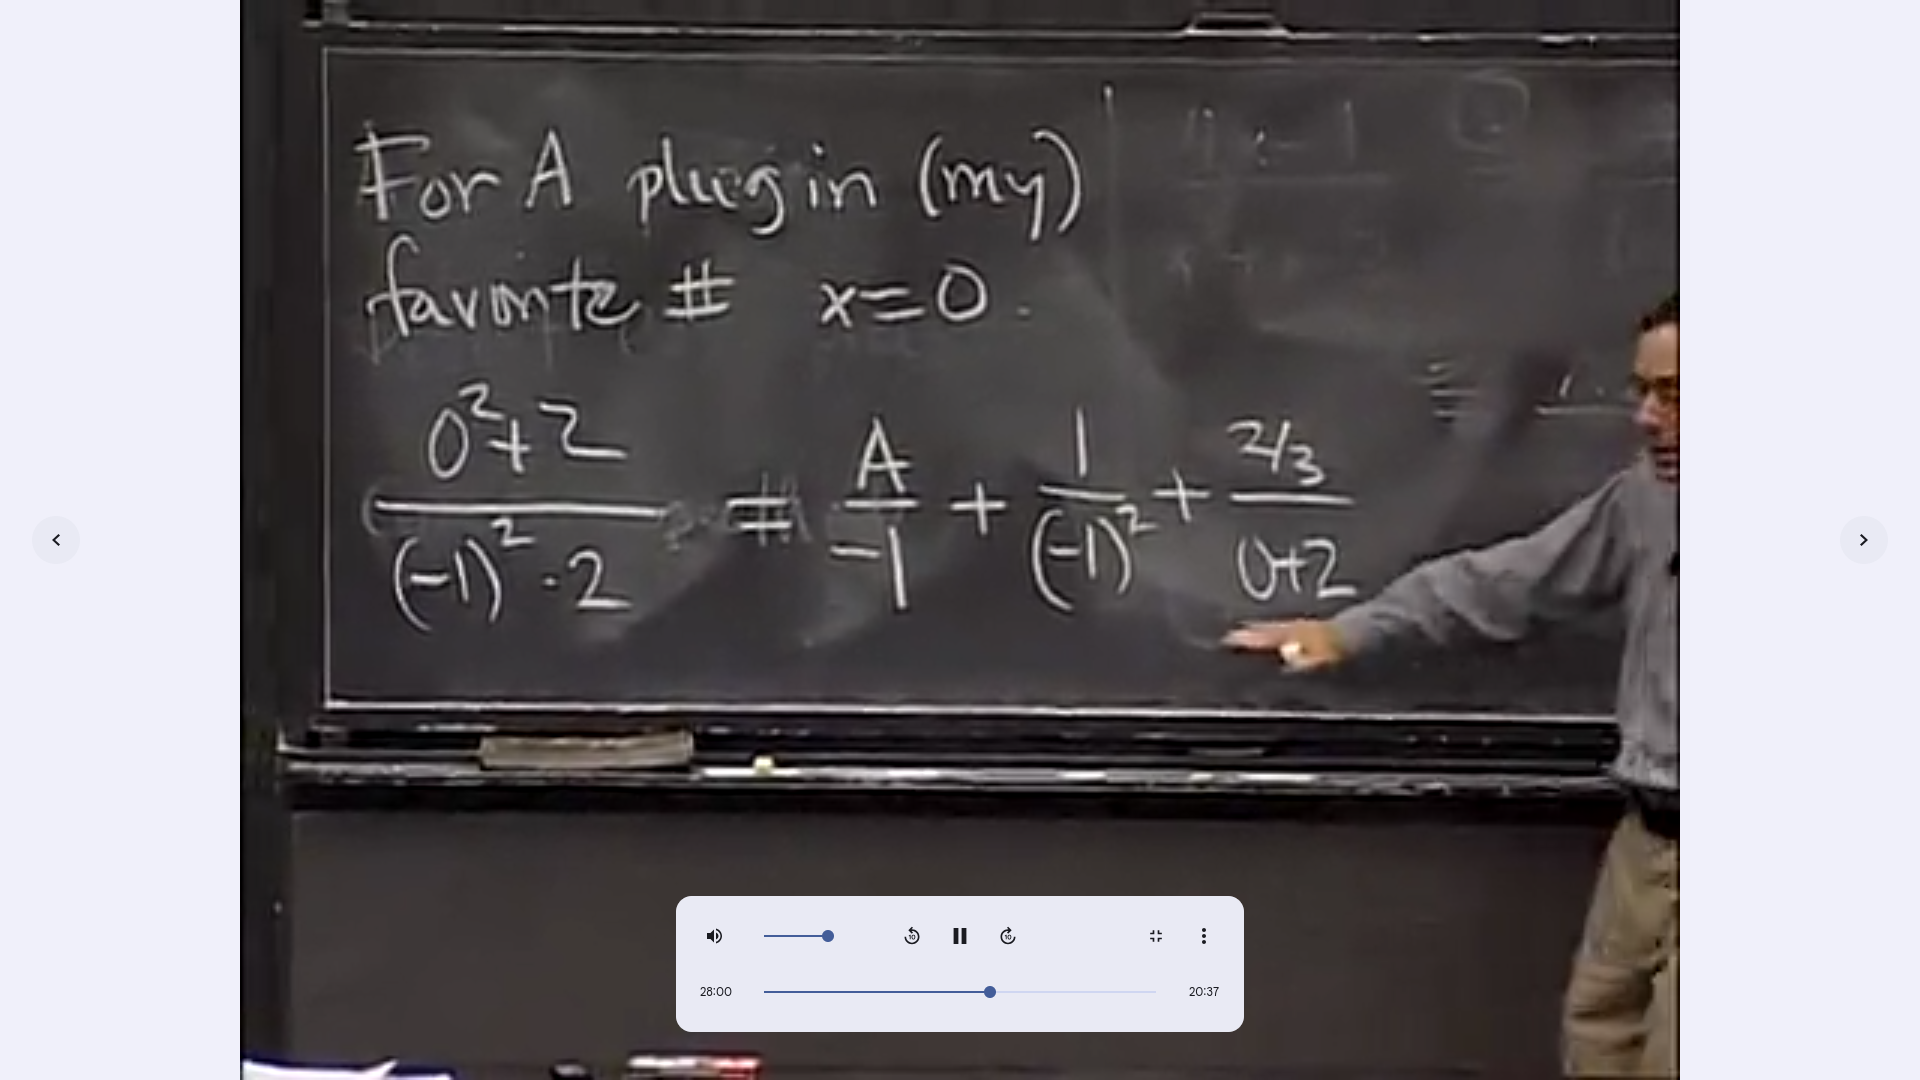 For A plug in (my)
favorite # x=0.
0²+2 / (-1)²·2 = A/-1 + 1/(-1)² + 2/3 / 0+2
28:00 20:37